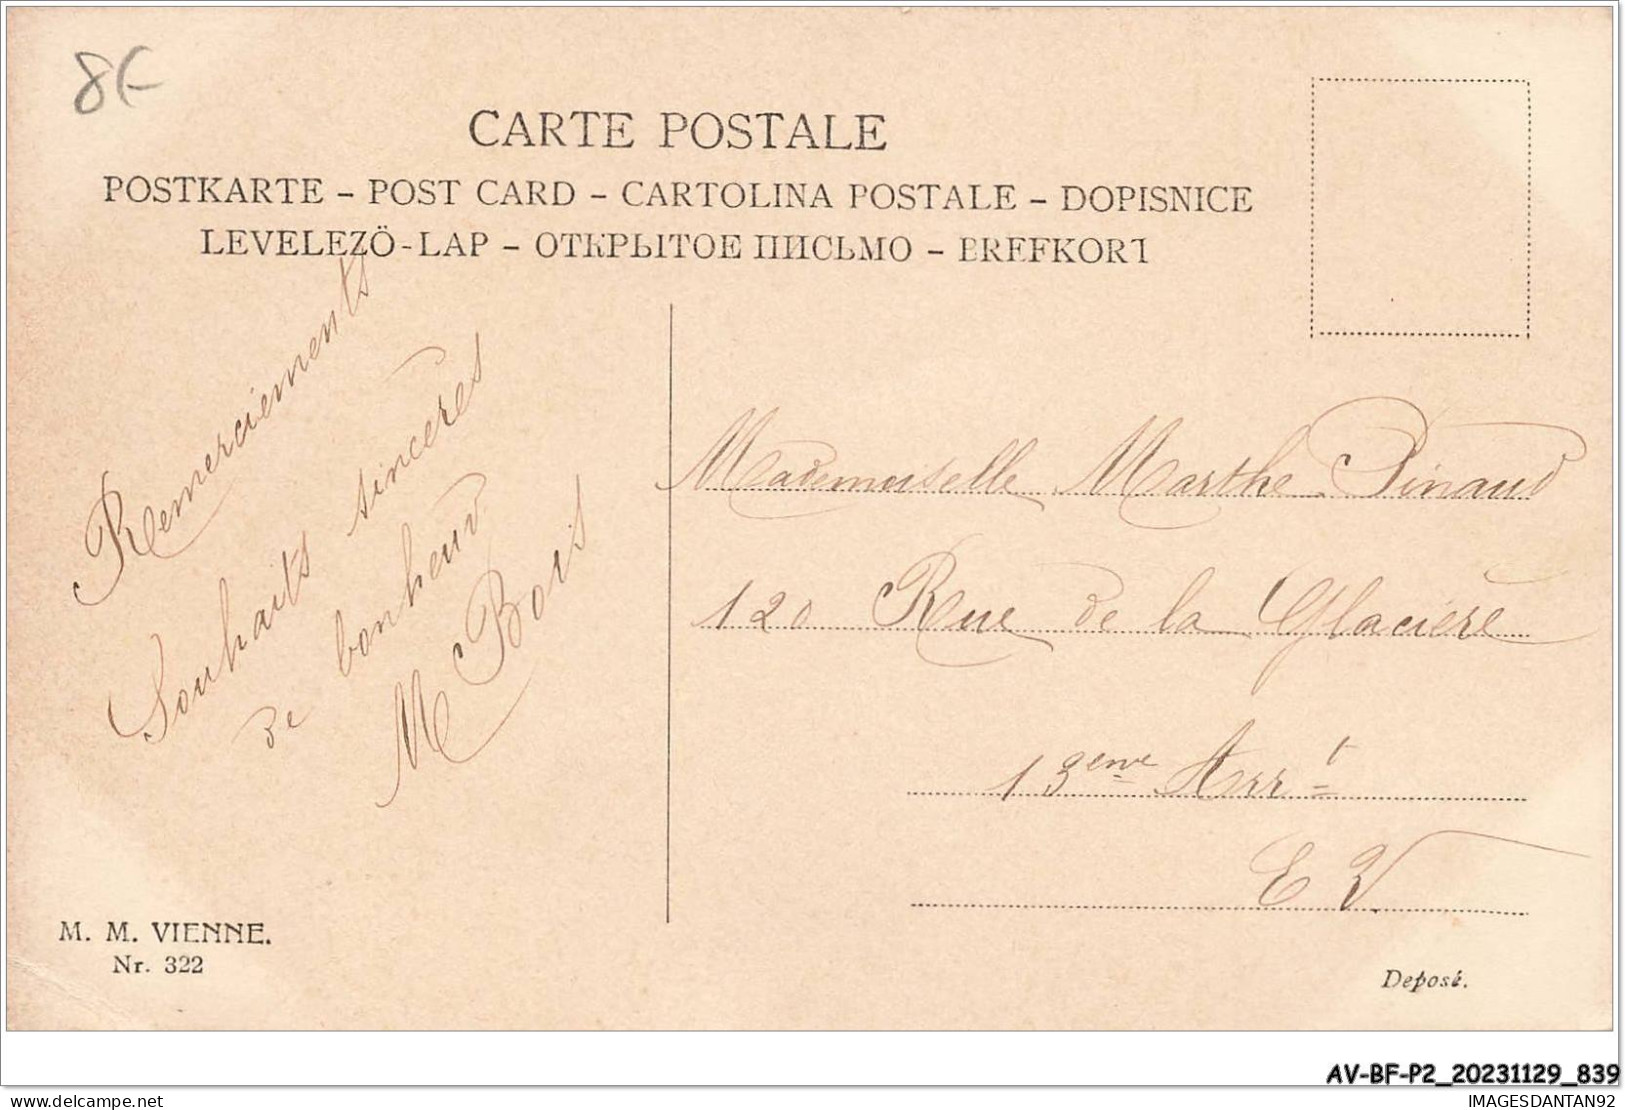 8€
CARTE POSTALE
POSTKARTE – POST CARD – CARTOLINA POSTALE – DOPISNICE
LEVELEZÖ-LAP – ОТКРЫТОЕ ПИСЬМО – BREFKORT
Remerciements
Souhaits sincères
de bonheur
M Bois
Mademoiselle Marthe Pinaud
120 Rue de la Glacière
13ème Arrt
E V
M. M. VIENNE.
Nr. 322
Deposé.
AV-BF-P2_20231129_839
IMAGESDANTAN92